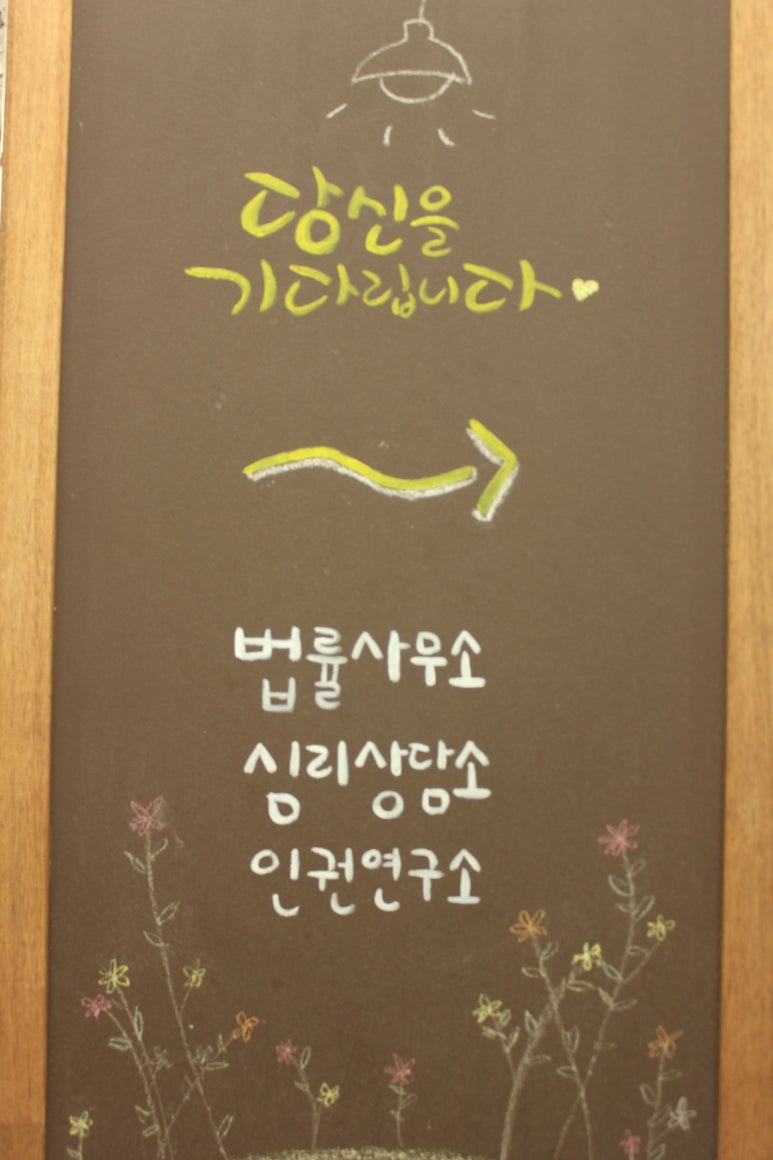 당신을
기다립니다
법률사무소
심리상담소
인권연구소